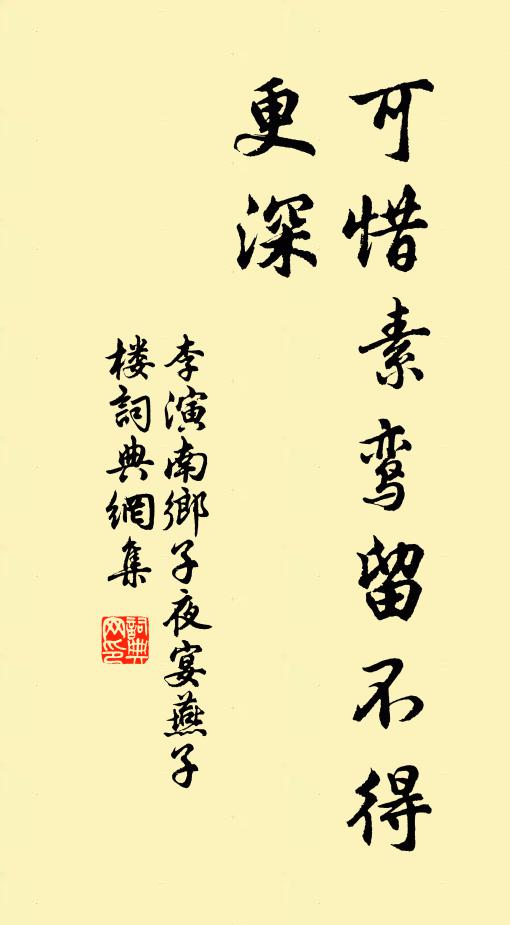 可惜素鸾留不得
更深
李演南鄉子夜宴燕子
楼詞典網集
詞典
网印